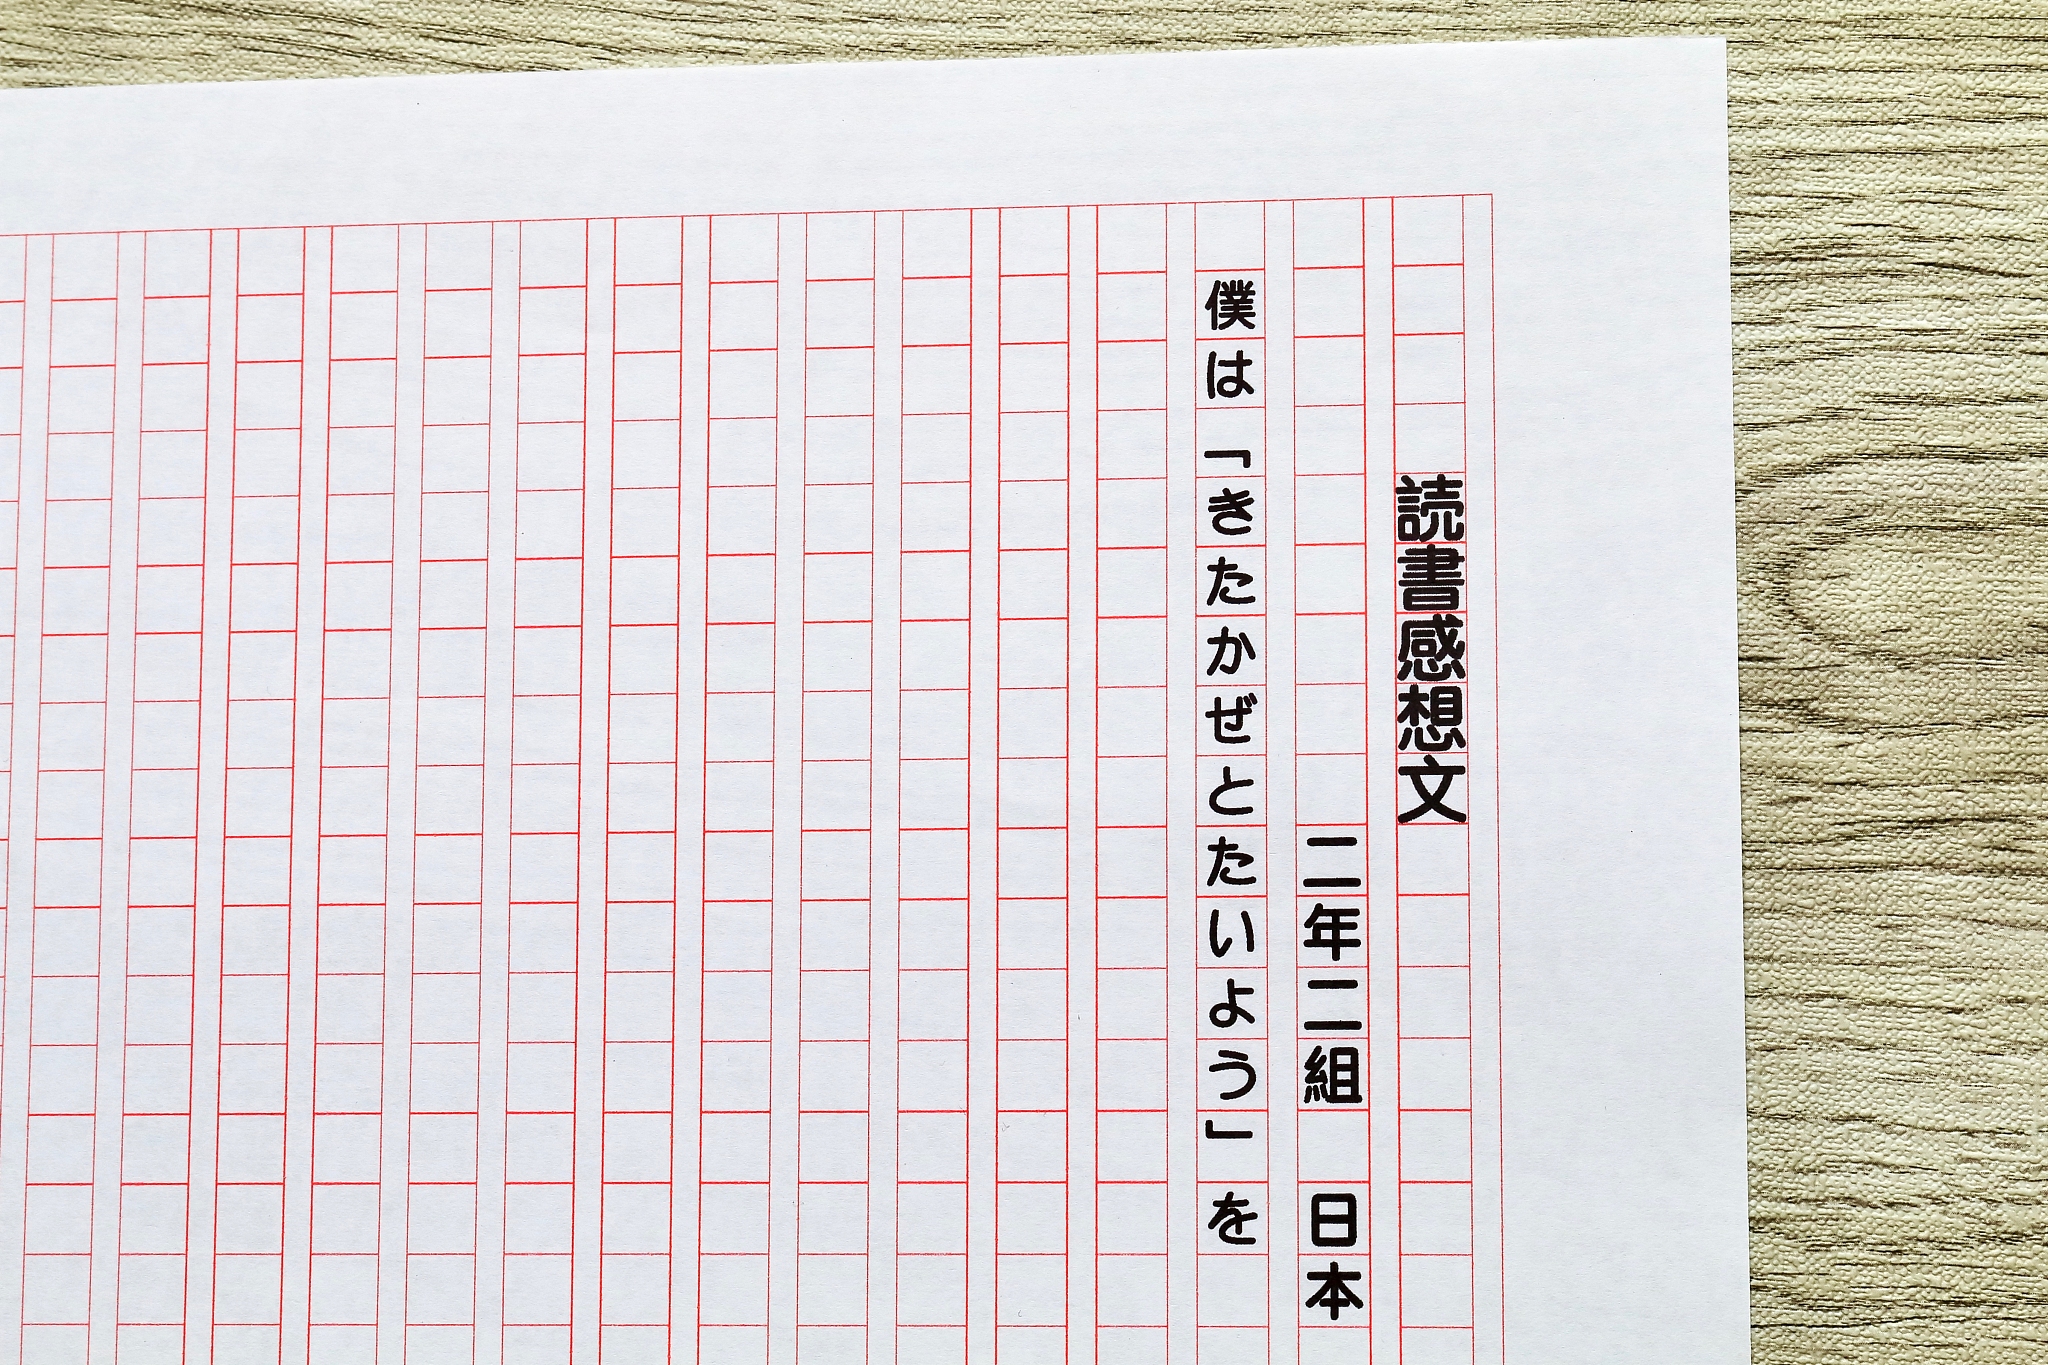 読書感想文
二年二組　日本
僕は「きたかぜとたいよう」を